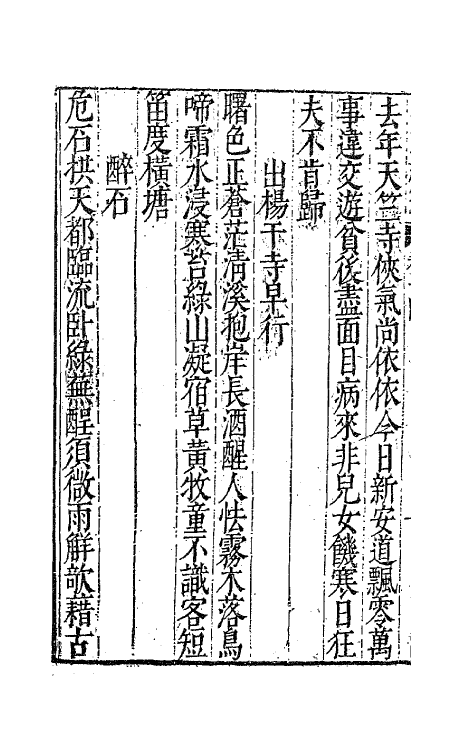 去年天竺寺俠氣尚依依今日新安道飄零萬
事違交遊貧後盡面目病來非兒女饑寒日狂
夫不肯歸
出楊干寺早行
曙色正蒼茫清溪抱岸長酒醒人怯霧木落鳥
啼霜水浸寒苔綠山凝宿草黃牧童不識客短
笛度橫塘
醉石
危石拱天都臨流卧綠蕪醒須微雨解歌藉古